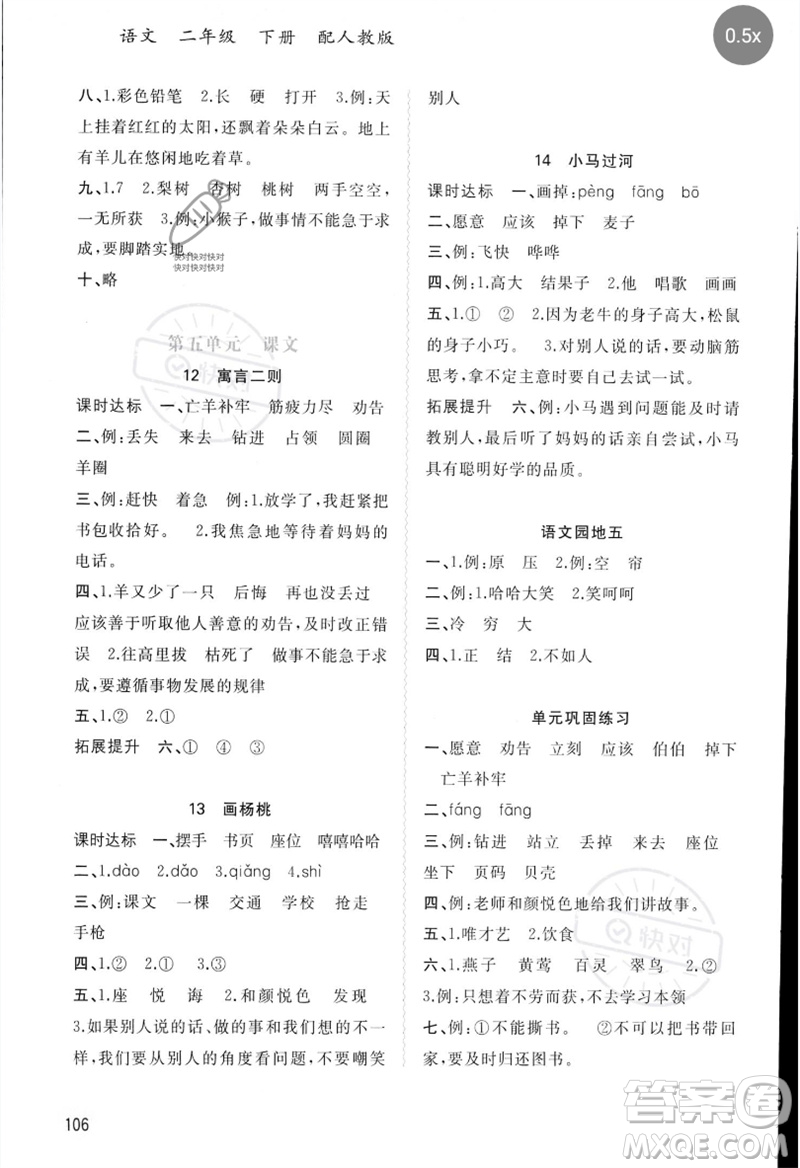 语文 二年级 下册 配人教版
0.5x
八、1.彩色铅笔 2.长 硬 打开 3.例:天
上挂着红红的太阳，还飘着朵朵白云。地上
有羊儿在悠闲地吃着草。
九、1.7 2.梨树 杏树 桃树 两手空空，
一无所获 3.例:小猴子，做事情不能急于求
成，要脚踏实地。
快对快对快对
快对快对快对
十、略
第五单元 课文
12 寓言二则
课时达标 一、亡羊补牢 筋疲力尽 劝告
二、例:丢失 来去 钻进 占领 圆圈
羊圈
三、例:赶快 着急 例:1.放学了，我赶紧把
书包收拾好。 2.我焦急地等待着妈妈的
电话。
四、1.羊又少了一只 后悔 再也没丢过
应该善于听取他人善意的劝告，及时改正错
误 2.往高里拔 枯死了 做事不能急于求
成，要遵循事物发展的规律
五、1.② 2.①
拓展提升 六、① ④ ③
13 画杨桃
课时达标 一、摆手 书页 座位 嘻嘻哈哈
二、1.dào 2.dǎo 3.qiǎng 4.shì
三、例:课文 一棵 交通 学校 抢走
手枪
四、1.② 2.① 3.③
五、1.座 悦 诲 2.和颜悦色 发现
3.如果别人说的话、做的事和我们想的不一
样，我们要从别人的角度看问题，不要嘲笑
106
别人
14 小马过河
课时达标 一、画掉:pèng fāng bō
二、愿意 应该 掉下 麦子
三、例:飞快 哗哗
四、例:1.高大 结果子 2.他 唱歌 画画
五、1.① ② 2.因为老牛的身子高大，松鼠
的身子小巧。 3.对别人说的话，要动脑筋
思考，拿不定主意时要自己去试一试。
拓展提升 六、例:小马遇到问题能及时请
教别人，最后听了妈妈的话亲自尝试，小马
具有聪明好学的品质。
语文园地五
一、1.例:原 压 2.例:空 帘
二、例:1.哈哈大笑 2.笑呵呵
三、冷 穷 大
四、1.正 结 2.不如人
单元巩固练习
一、愿意 劝告 立刻 应该 伯伯 掉下
亡羊补牢
二、fáng fāng
三、例:钻进 站立 丢掉 来去 座位
坐下 页码 贝壳
四、例:老师和颜悦色地给我们讲故事。
五、1.唯才艺 2.饮食
六、1.燕子 黄莺 百灵 翠鸟 2.②
3.例:只想着不劳而获，不去学习本领
七、例:①不能撕书。 ②不可以把书带回
家，要及时归还图书。
快对
答案圈
MXQE.COM